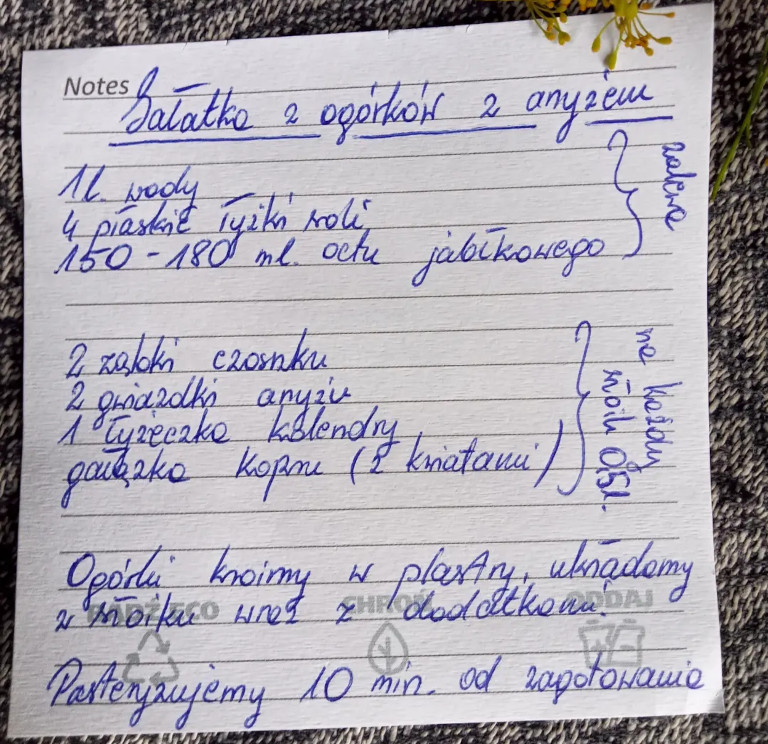 Notes
Sałatka z ogórków z anyżem
1 l. wody
4 płaskie łyżki soli
150-180 ml. octu jabłkowego
zalewa
2 ząbki czosnku
2 gwiazdki anyżu
1 łyżeczka kolendry
gałązka kopru (z kwiatami)
na każdy
słoik 0,5 l.
Ogórki kroimy w plastry, układamy
w słoiku wraz z dodatkami.
BĄDŹ ECO CHROŃ ODDAJ
Pasteryzujemy 10 min. od zagotowania